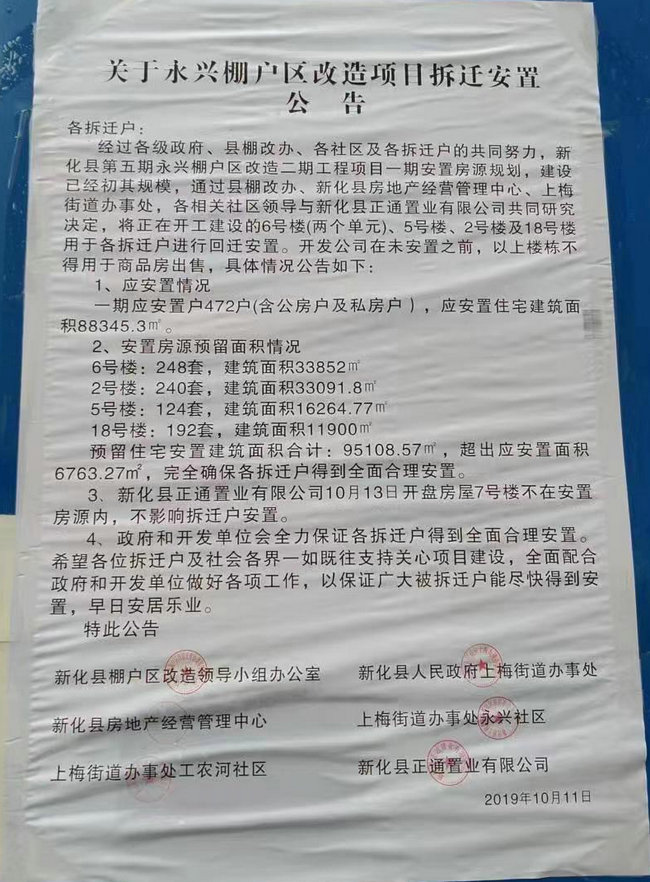 关于永兴棚户区改造项目拆迁安置
公告
各拆迁户：
经过各级政府、县棚改办、各社区及各拆迁户的共同努力，新
化县第五期永兴棚户区改造二期工程项目一期安置房源规划，建设
已经初其规模，通过县棚改办、新化县房地产经营管理中心、上梅
街道办事处，各相关社区领导与新化县正通置业有限公司共同研究
决定，将正在开工建设的6号楼(两个单元)、5号楼、2号楼及18号楼
用于各拆迁户进行回迁安置。开发公司在未安置之前，以上楼栋不
得用于商品房出售，具体情况公告如下：
1、应安置情况
一期应安置户472户(含公房户及私房户），应安置住宅建筑面
积88345.3㎡。
2、安置房源预留面积情况
6号楼：248套，建筑面积33852㎡
2号楼：240套，建筑面积33091.8㎡
5号楼：124套，建筑面积16264.77㎡
18号楼：192套，建筑面积11900㎡
预留住宅安置建筑面积合计：95108.57㎡，超出应安置面积
6763.27㎡，完全确保各拆迁户得到全面合理安置。
3、新化县正通置业有限公司10月13日开盘房屋7号楼不在安置
房源内，不影响拆迁户安置。
4、政府和开发单位会全力保证各拆迁户得到全面合理安置。
希望各位拆迁户及社会各界一如既往支持关心项目建设，全面配合
政府和开发单位做好各项工作，以保证广大被拆迁户能尽快得到安
置，早日安居乐业。
特此公告
新化县棚户区改造领导小组办公室 新化县人民政府上梅街道办事处
新化县房地产经营管理中心 上梅街道办事处永兴社区
上梅街道办事处工农河社区 新化县正通置业有限公司
2019年10月11日